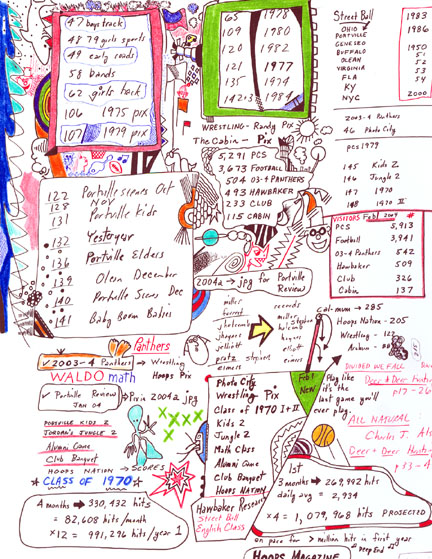 47 boys track
48 79 girls sports
49 early roads
58 bands
62 girls track
106 1975 pix
107 1979 pix
65 1978
109 1980
120 1982
121 1977
135 1974
142+3 1984
WRESTLING - Randy Pix
The Cabin - Pix
5,291 PCS
3,673 FOOTBALL
504 03-4 PANTHERS
493 HAWBAKER
233 CLUB
115 CABIN
Street Ball
OHIO
PORTVILLE
GENESEO
BUFFALO
OLEAN
VIRGINIA
FLA
KY
NYC
1983
1986
1950
51
52
53
54
2000
2003-4 Panthers
46 Photo City
pcs 1979
145 Kidz 2
146 Jungle 2
147 1970
148 1970 II
VISITORS Feb 1 2004 #
PCS 5,913
Football 3,941
03-4 Panthers 542
Hawbaker 509
Club 326
Cabin 137
122 Portville Scenes Oct
128 Nov
131 Portville Kids
132 Yesteryear
136 Portville Elders
139 Olean December
140 Portville Scenes Dec
141 Baby Boom Babies
2004a → jpg for Portville Review
miller
forrest
jhotcomb
jhaynes
elliott
pratz stephen
eimers
records
miller
stephen
haynes
elliott
eimers
Col-mum → 285
Hoops Nation - 205
Wrestling - 122
Panthers
✓ 2003-4 Panthers → Wrestling
Hoops Pix
WALDO math
✓ Portville Review → Pix in 2004a → jpg
JAN 04
PORTVILLE KIDS 2
JORDAN'S JUNGLE 2
Alumni Game
Club Banquet
HOOPS NATION → SCORES
CLASS OF 1970
4 months → 330,432 hits
= 82,608 hits/month
×12 = 991,296 hits/year 1
Photo City
Wrestling Pix
Class of 1970 I + II
Kids 2
Jungle 2
Math Class
Alumni Game
Club Banquet
HOOPS NATION
Hawbaker Research
Street Ball
English Class
Feb 1
New
Play like
it's the
last game you'll
ever play.
DIVIDED WE FALL
Deer + Deer Hunting
p17-27
ALL NATURAL
Charles J. Als
Deer + Deer Hunt
p33-4
1st
3 months → 269,992 hits
daily avg = 2,934
×4 = 1,079,968 hits PROJECTED
on pace for > million hits in first year
HOOPS MAGAZINE